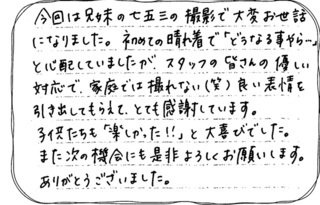 今回は兄妹の七五三の撮影で大変お世話
になりました。初めての晴れ着で「どうなる事やら…」
と心配していましたが、スタッフの皆さんの優しい
対応で、家庭では撮れない(笑)良い表情を
引き出してもらえて、とても感謝しています。
子供たちも「楽しかった!!」と大喜びでした。
また次の機会にも是非よろしくお願いします。
ありがとうございました。